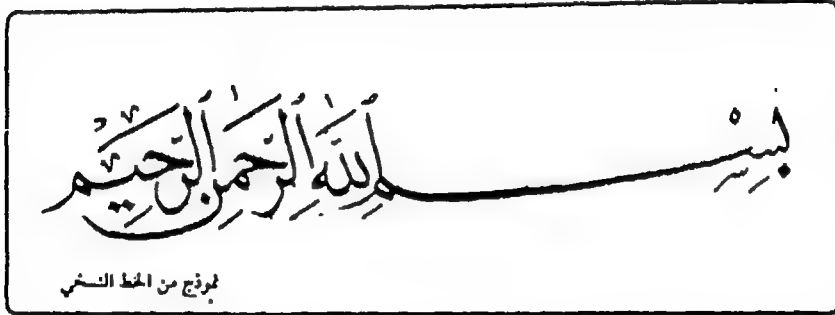 بِسْمِ اللَّهِ الرَّحْمَنِ الرَّحِيمِ
نموذج من الخط النسخي